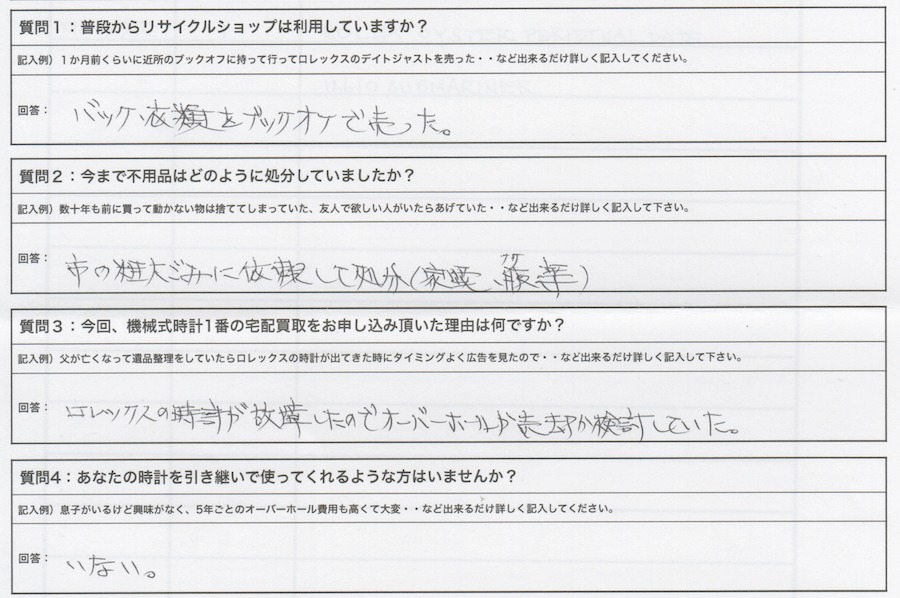 質問1：普段からリサイクルショップは利用していますか？
記入例）1か月前くらいに近所のブックオフに持って行ってロレックスのデイトジャストを売った・・など出来るだけ詳しく記入してください。
回答： バック、衣類をブックオフで売った。
質問2：今まで不用品はどのように処分していましたか？
記入例）数十年も前に買って動かない物は捨ててしまっていた、友人で欲しい人がいたらあげていた・・など出来るだけ詳しく記入して下さい。
回答： 市の粗大ごみに依頼して処分（家電、服
質問3：今回、機械式時計1番の宅配買取をお申し込み頂いた理由は何ですか？
記入例）父が亡くなって遺品整理をしていたらロレックスの時計が出てきた時にタイミングよく広告を見たので・・など出来るだけ詳しく記入して下さい。
回答： ロレックスの時計が故障したのでオーバーホールか売却か検討していた。
質問4：あなたの時計を引き継いで使ってくれるような方はいませんか？
記入例）息子がいるけど興味がなく、5年ごとのオーバーホール費用も高くて大変・・など出来るだけ詳しく記入してください。
回答： いない。